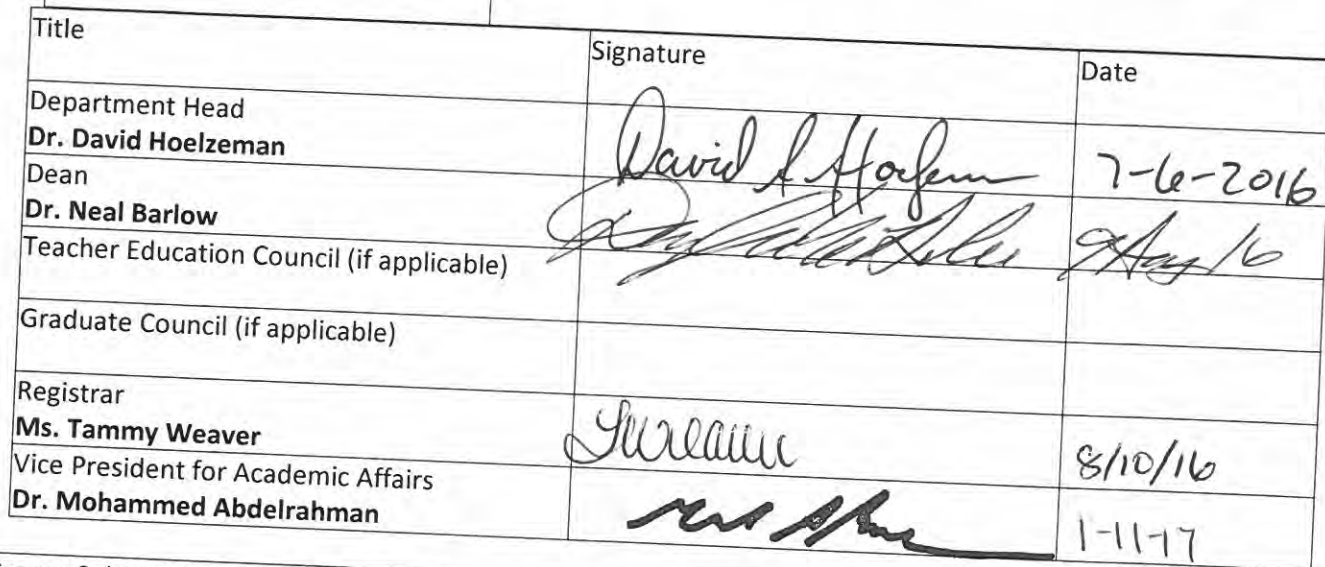 Title Signature Date
Department Head
Dr. David Hoelzeman David 7-6-2016
Dean
Dr. Neal Barlow 16
Teacher Education Council (if applicable)
Graduate Council (if applicable)
Registrar
Ms. Tammy Weaver 8/10/16
Vice President for Academic Affairs
Dr. Mohammed Abdelrahman 1-11-17